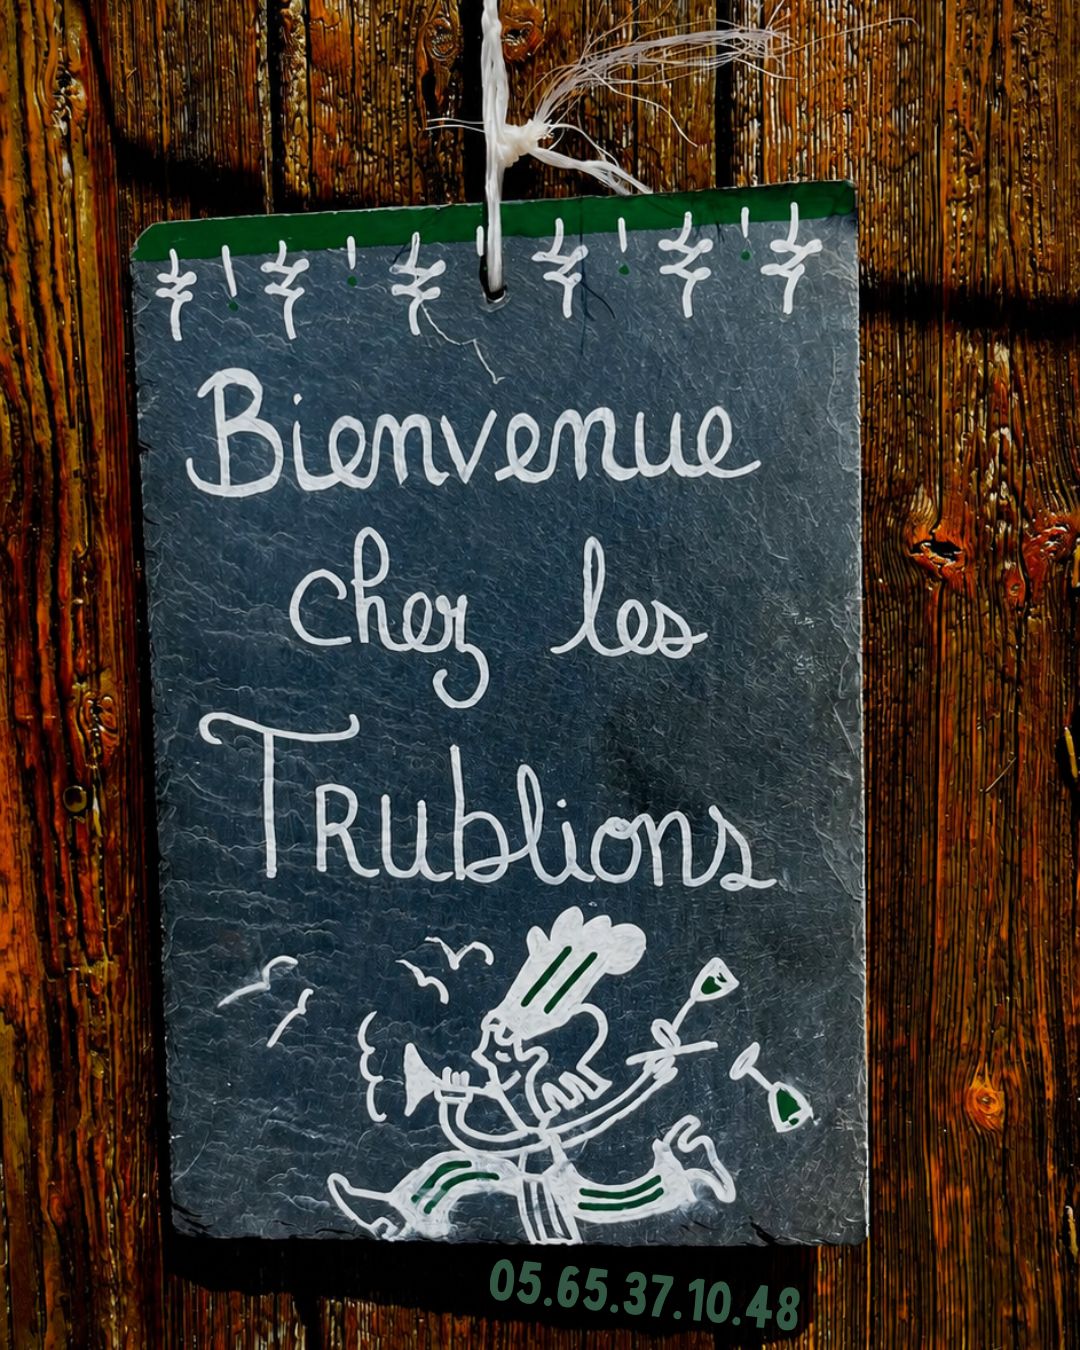 Bienvenue
chez les
Trublions
05.65.37.10.48